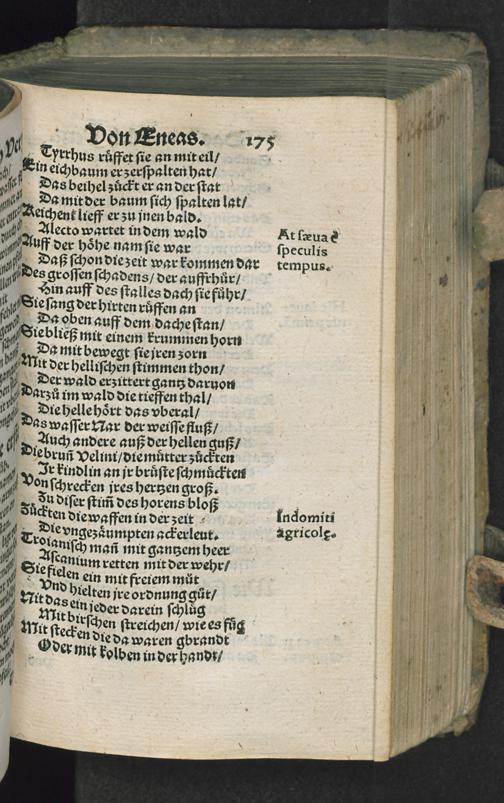 Von Æneas. 175
Tyrrhus rüffet sie an mit eil/
Ein eichbaum er zerspalten hat/
Das beihel zückt er an der stat
Da mit der baum sich spalten lat/
Reichent lieff er zu jnen bald.
Alecto wartet in dem wald
Auff der höhe nam sie war
Daß schon die zeit war kommen dar
Des grossen schadens/ der auffrhür/
Hin auff des stalles dach sie führ/
Sie sang der hirten rüffen an
Da oben auff dem dache stan/
Sie bließ mit einem krummen horn
Da mit bewegt sie jren zorn
Mit der hellischen stimmen thon/
Der wald erzittert gantz daruon
Darzü im wald die tieffen thal/
Die helle hört das vberal/
Das wasser Nar der weisse fluß/
Auch andere auß der hellen guß/
Die bruñ Velini/ die mütter zückten
Jr kindlin an jr brüste schmückten
Von schrecken jres hertzen groß.
Zu diser stim̃ des horens bloß
Zückten die waffen in der zeit
Die vngezäumpten ackerleut.
Troianisch mañ mit gantzem heer
Ascanium retten mit der wehr/
Sie fielen ein mit freiem müt
Vnd hielten jre ordnung güt/
Nit das ein jeder darein schlüg
Mit birschen streichen/ wie es füg
Mit stecken die da waren gbrandt
Oder mit kolben in der handt/
At sæua è
speculis
tempus.
Indomiti
agricolę.